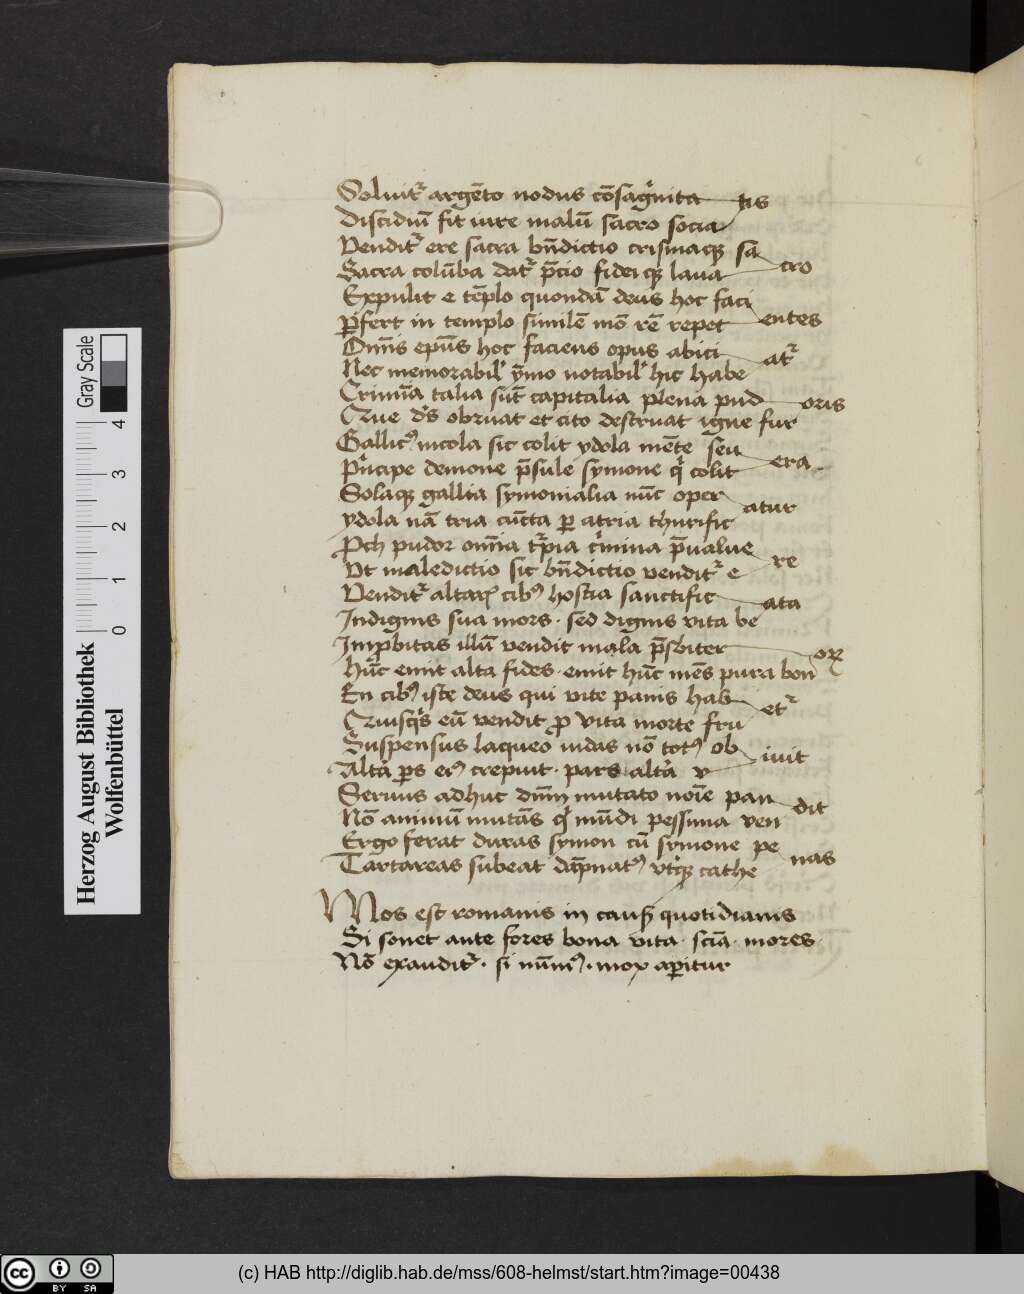 Soluitᷣ argēto nodus cōsagͥnita tis
Discidiū fit iure malū sacro socia
Venditᷣ ere sacra bn̄dictio crismaqꝫ sa
Sacra colūba datᷣ p̄cio fideiqꝫ laua cro
Expulit e tēplo quondā deus hoc faci
ꝑfert in templo similē mō rē repet entes
Om̄s ep̄us hoc faciens opus abici
Nec memorabilʼ ẏmo notabilʼ hic habe atᷣ
Crimīa talia sūt capitalia plena pud oris
Que dʼs obruat et cito destruat igne fur
Gallicꝰ incola sic colit ydola mēte seu
Pͥncipe demone p̄sule symone qͥ colit era.
Solaqꝫ gallia symonialia nūc oper
ydola nā tria cūcta ꝑ atria thurific atur
Proh pudor om̄ia tp̄ia cͥmina p̄ualue
Vt maledictio sic bn̄dictio venditᷣ e re
Venditᷣ altarꝭ cibꝰ hostia sanctific ata
Indignis sua mors. sed dignis vita be
Imꝓbitas illū vendit mala p̄sbiter
hūc emit alta fides. emit hūc mēs pura bon oꝝ
En cibꝰ iste deus qui vite panis hab
Quisqͥs eū vendit ꝓ vita morte fru etᷣ
Suspensus laqueo iudas nō totꝰ ob
Altͣa ꝑs eiꝰ crepuit. pars altͣa v iuit
Seruus adhuc dn̄m mutato noīe pan
Nō animū mutās qͥ mūdi pessima ven dit
Ergo ferat duras symon cū symone pe
Tartareas subeat dāpnatꝰ vtͥqꝫ cathe nas
Mos est romanis in causꝭ quotidianis
Si sonet ante fores bona vita. sciā. mores.
Nō exauditᷣ. si nūmꝰ. mox aꝑitur
Herzog August Bibliothek
Wolfenbüttel
Gray Scale
0 1 2 3 4
cc BY SA
(c) HAB http://diglib.hab.de/mss/608-helmst/start.htm?image=00438